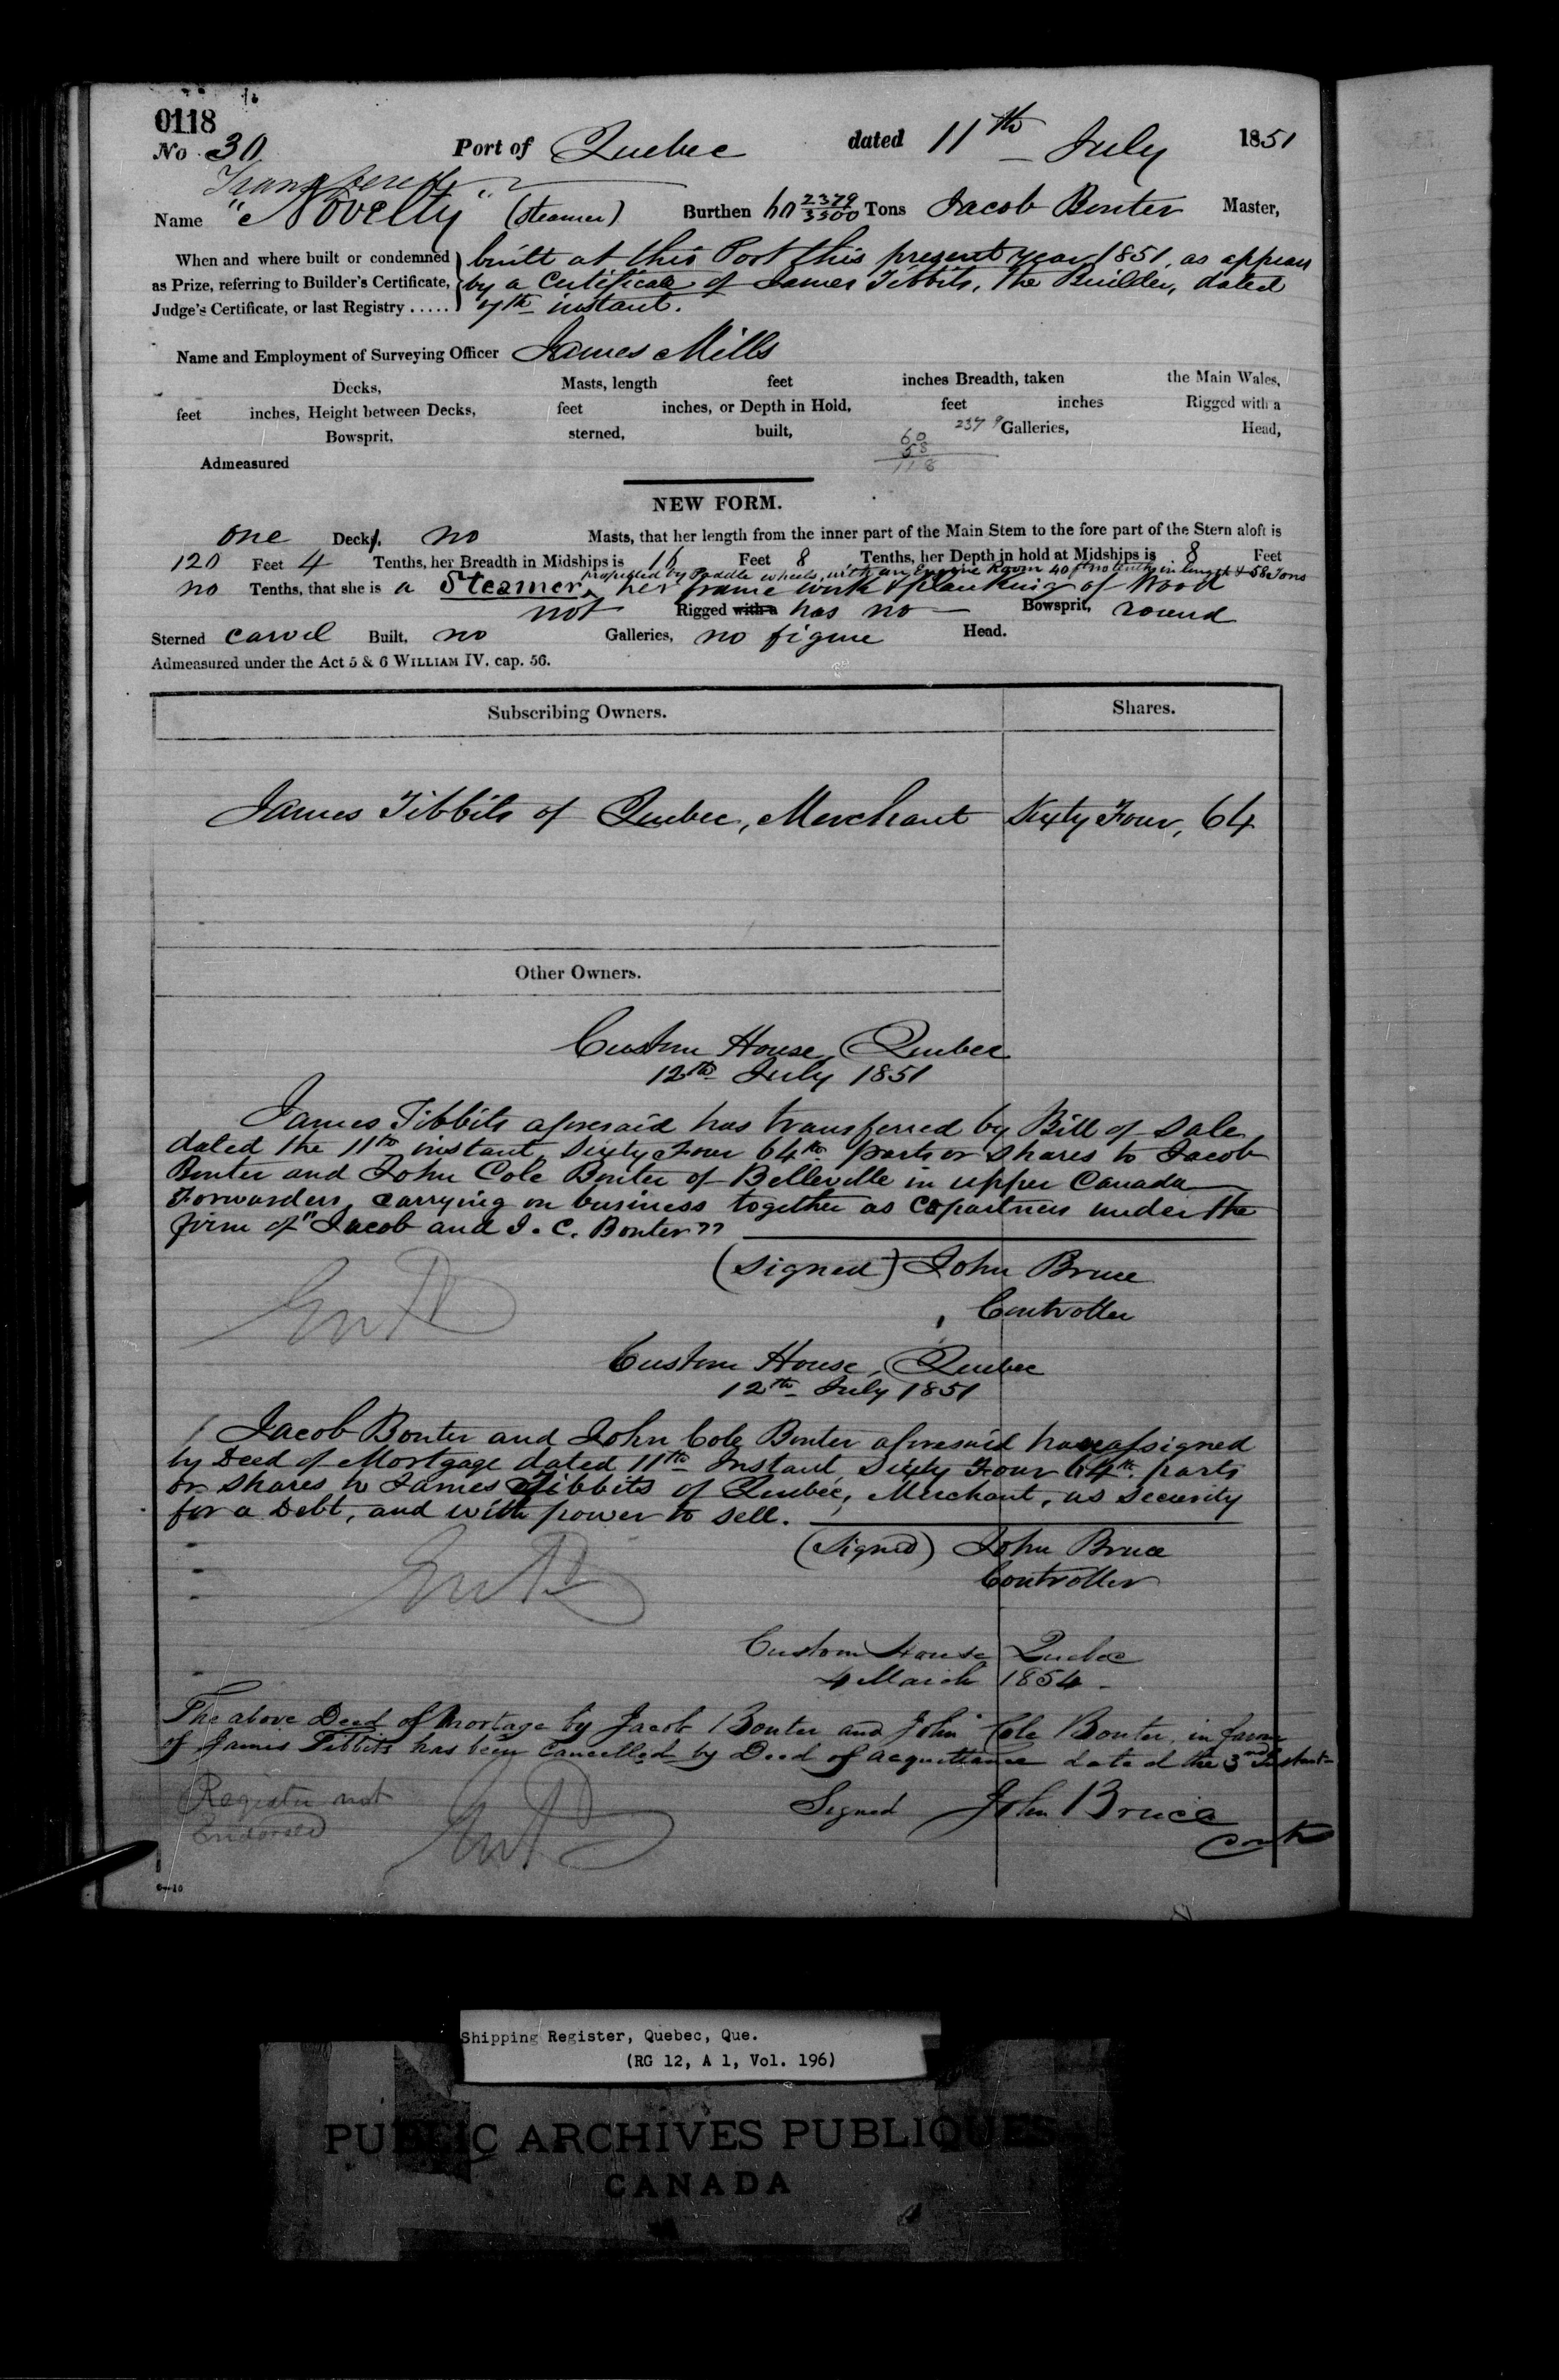 0118
No 30 Port of Quebec dated 11th July 1851
Transferred
Name "Novelty" (Steamer) Burthen 60 2379/3500 Tons Jacob Bonter Master,
When and where built or condemned built at this Port this present year 1851, as appears
as Prize, referring to Builder's Certificate, by a Certificate of James Tibbits, the Builder, dated
Judge's Certificate, or last Registry ..... 7th instant.
Name and Employment of Surveying Officer James Mills
Decks, Masts, length feet inches Breadth, taken the Main Wales,
feet inches, Height between Decks, feet inches, or Depth in Hold, feet inches Rigged with a
Bowsprit, sterned, built, Galleries, Head,
2379
60
58
118
Admeasured
NEW FORM.
one Decks, no Masts, that her length from the inner part of the Main Stem to the fore part of the Stern aloft is
120 Feet 4 Tenths, her Breadth in Midships is 16 Feet 8 Tenths, her Depth in hold at Midships is 8 Feet
propelled by Paddle wheels, with an Engine Room 40 ft no tenths in length & 58 Tons
no Tenths, that she is a Steamer, her frame work & planking of Wood
not Rigged with a has no Bowsprit, round
Sterned carvel Built, no Galleries, no figure Head.
Admeasured under the Act 5 & 6 WILLIAM IV. cap. 56.
Subscribing Owners. Shares.
James Tibbits of Quebec, Merchant Sixty Four, 64
Other Owners.
Custom House, Quebec
12th July 1851
James Tibbits aforesaid has transferred by Bill of Sale
dated the 11th instant, Sixty Four 64th parts or shares to Jacob
Bonter and John Cole Bonter of Belleville in upper Canada
Forwarders, carrying on business together as Copartners under the
firm of "Jacob and J. C. Bonter"
(Signed) John Bruce
Controller
Custom House, Quebec
12th July 1851
Jacob Bonter and John Cole Bonter aforesaid have assigned
by Deed of Mortgage dated 11th Instant, Sixty Four 64th parts
or shares to James Tibbits of Quebec, Merchant, as security
for a Debt, and with power to sell.
(Signed) John Bruce
Controller
Custom House Quebec
4 March 1854
The above Deed of Mortage by Jacob Bonter and John Cole Bonter, in favor
of James Tibbits has been Cancelled by Deed of acquittance dated the 3rd Instant
Register not
Endorsed
Signed John Bruce
Contr
6-10
Shipping Register, Quebec, Que.
(RG 12, A 1, Vol. 196)
PUBLIC ARCHIVES PUBLIQUES
CANADA